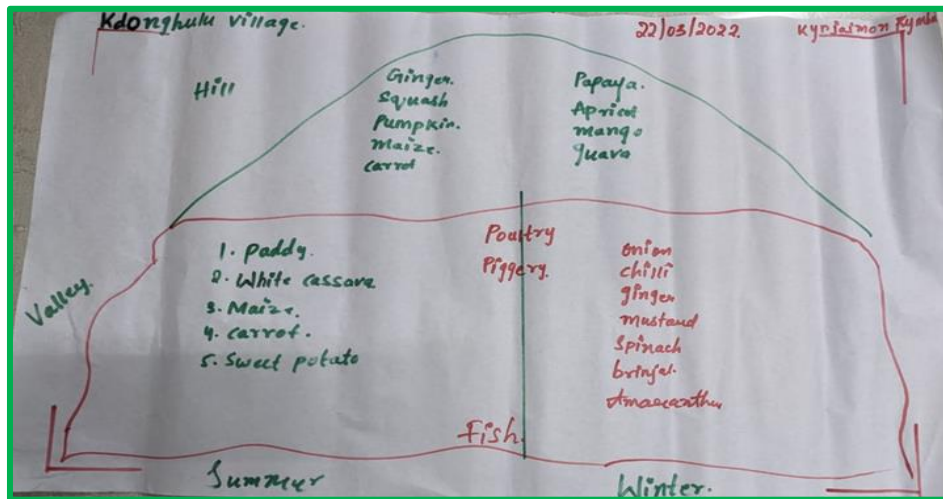 Kdonghulu Village.
22/03/2022.
Kyrjasmon Rymba
Hill
Ginger.
Squash
Pumpkin.
Maize.
carrot
Papaya.
Apricot
mango
guava
Valley.
1. Paddy.
2. White cassava
3. Maize.
4. carrot.
5. Sweet potato
Poultry
Piggery.
onion
chilli
ginger
mustaud
Spinach
brinjal.
Amaranthus
Fish.
Summer
Winter.